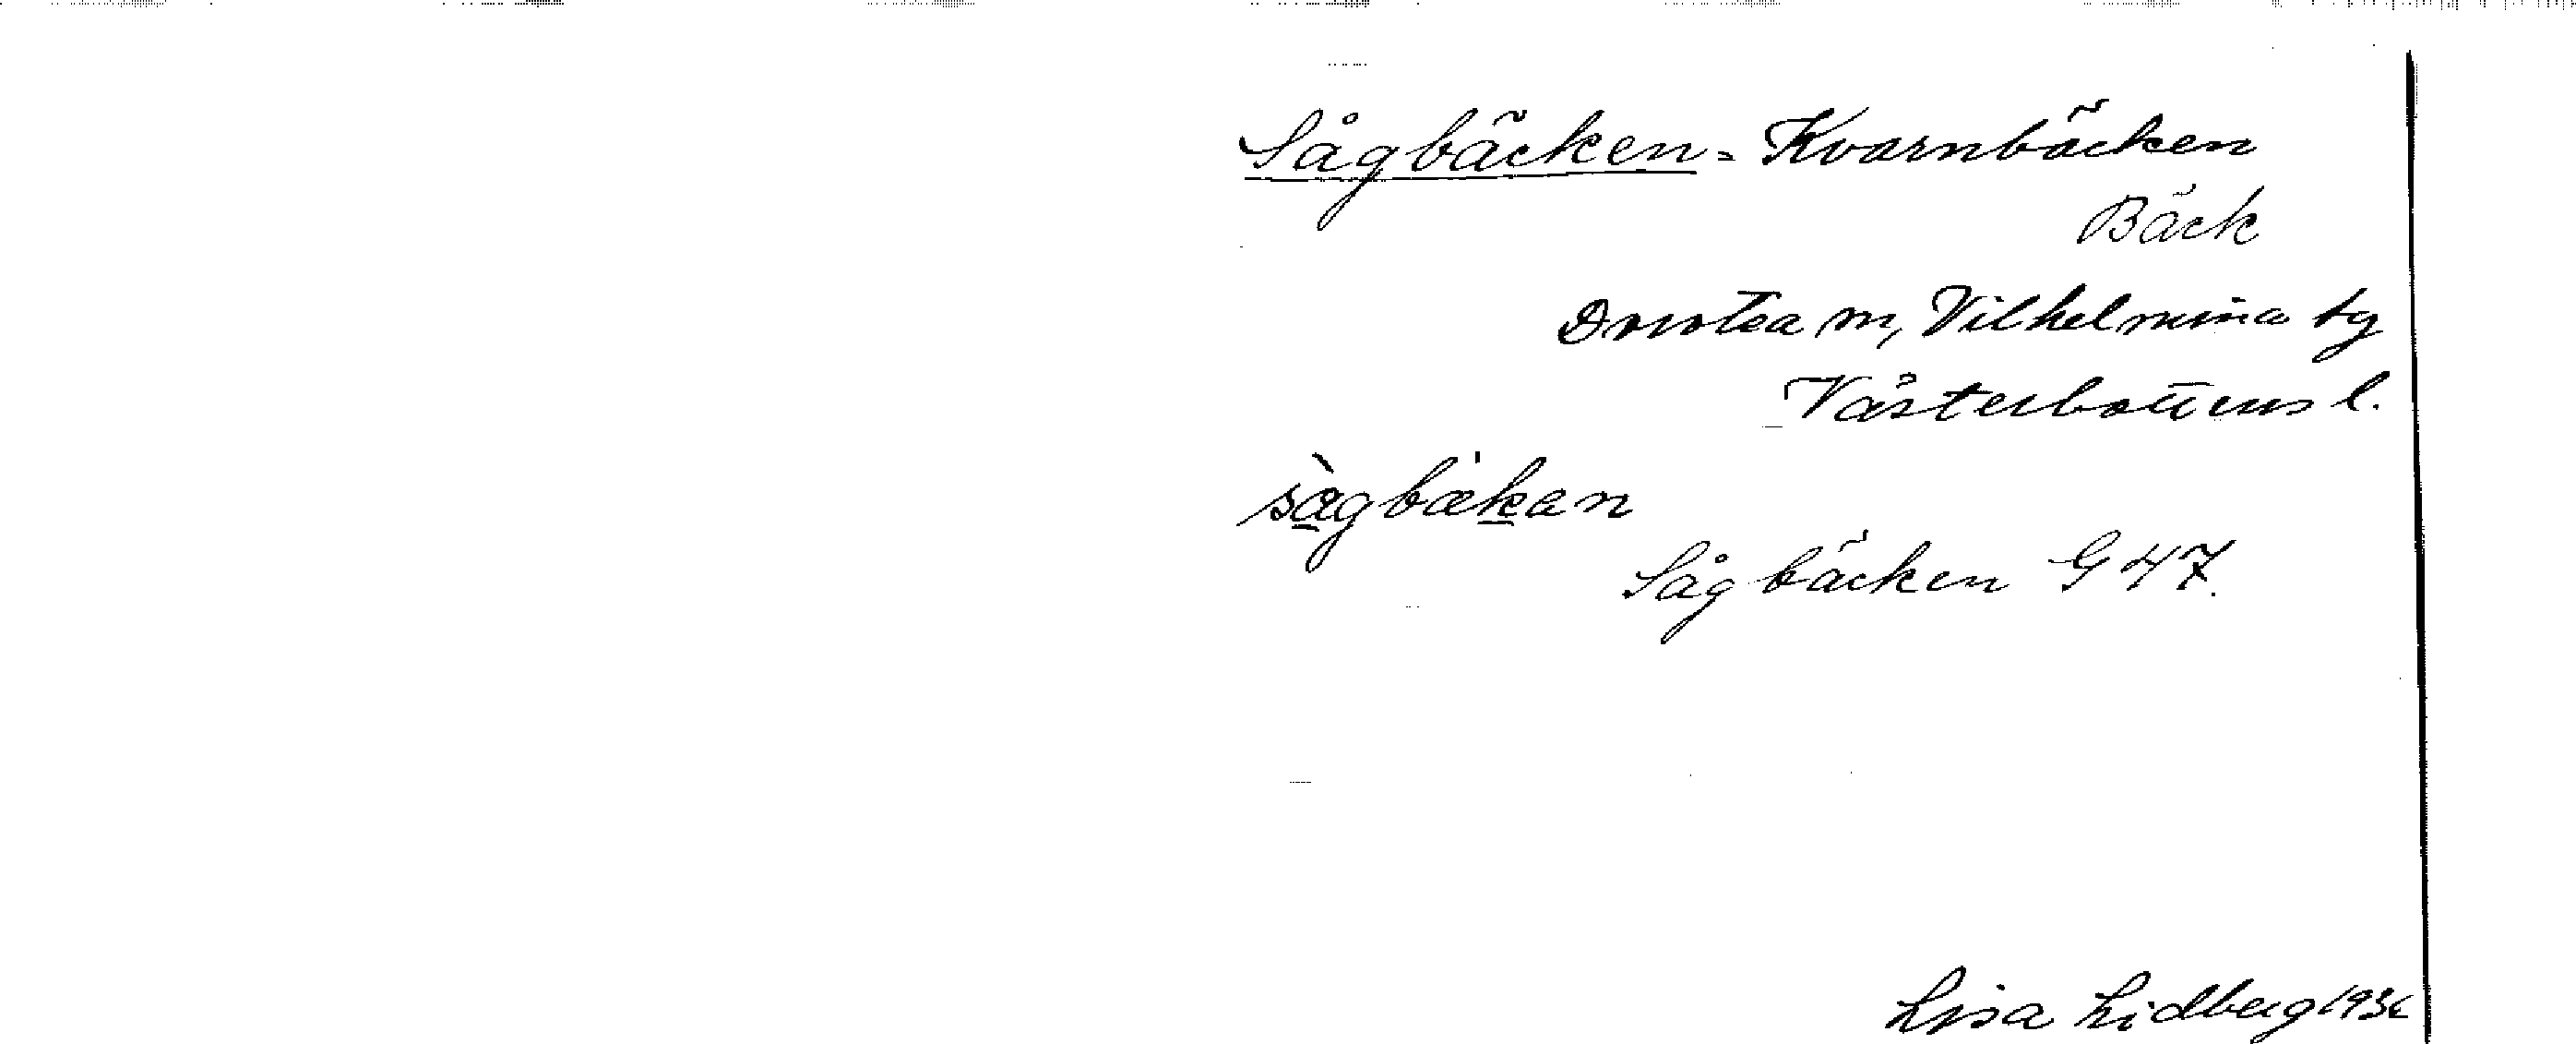 Sågbäcken = Kvarnbäcken
Bäck
Dorotea m, Vilhelmina tg
Västerbottens l.
sàgbækan
Sågbäcken G 47.
Lisa Lidberg